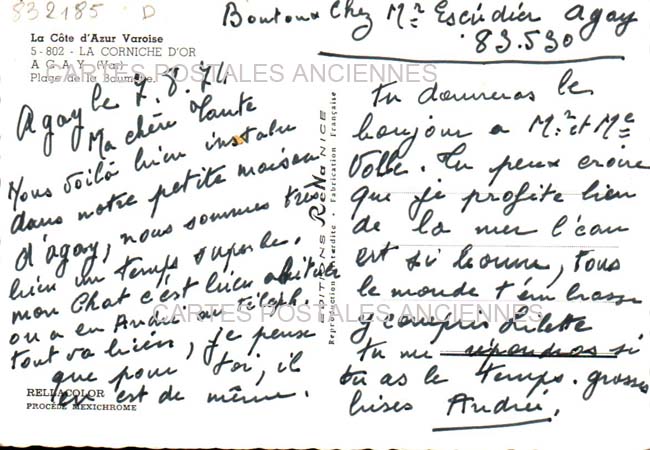 832185 D
Boutoux Chez Mr Escudier Agay
83.530
La Côte d'Azur Varoise
5 - 802 - LA CORNICHE D'OR
A G A Y (Var)
Plage de la Baumette
CARTES POSTALES ANCIENNES
Agay le 7.8.74
Ma chère Tante
Nous voilà bien installé
dans notre petite maison
d'agay, nous sommes très
bien un temps superbe.
mon Chat c'est bien abituer
on a en André au téleph.
tout va bien, je pense
que pour toi, il
en est de même.
RELLACOLOR
PROCÉDÉ MEXICHROME
EDITIONS RENA NICE
Reproduction Interdite - Fabrication Française
Tu donneras le
bonjour a Mr et Me
Volle. Tu peux croire
que je profite bien
de la mer l'eau
est si bonne, tous
le monde t'embrasse
y compris Lilette
tu me répondras si
tu as le temps. grosses
bises Andrée,
CARTES POSTALES ANCIENNES